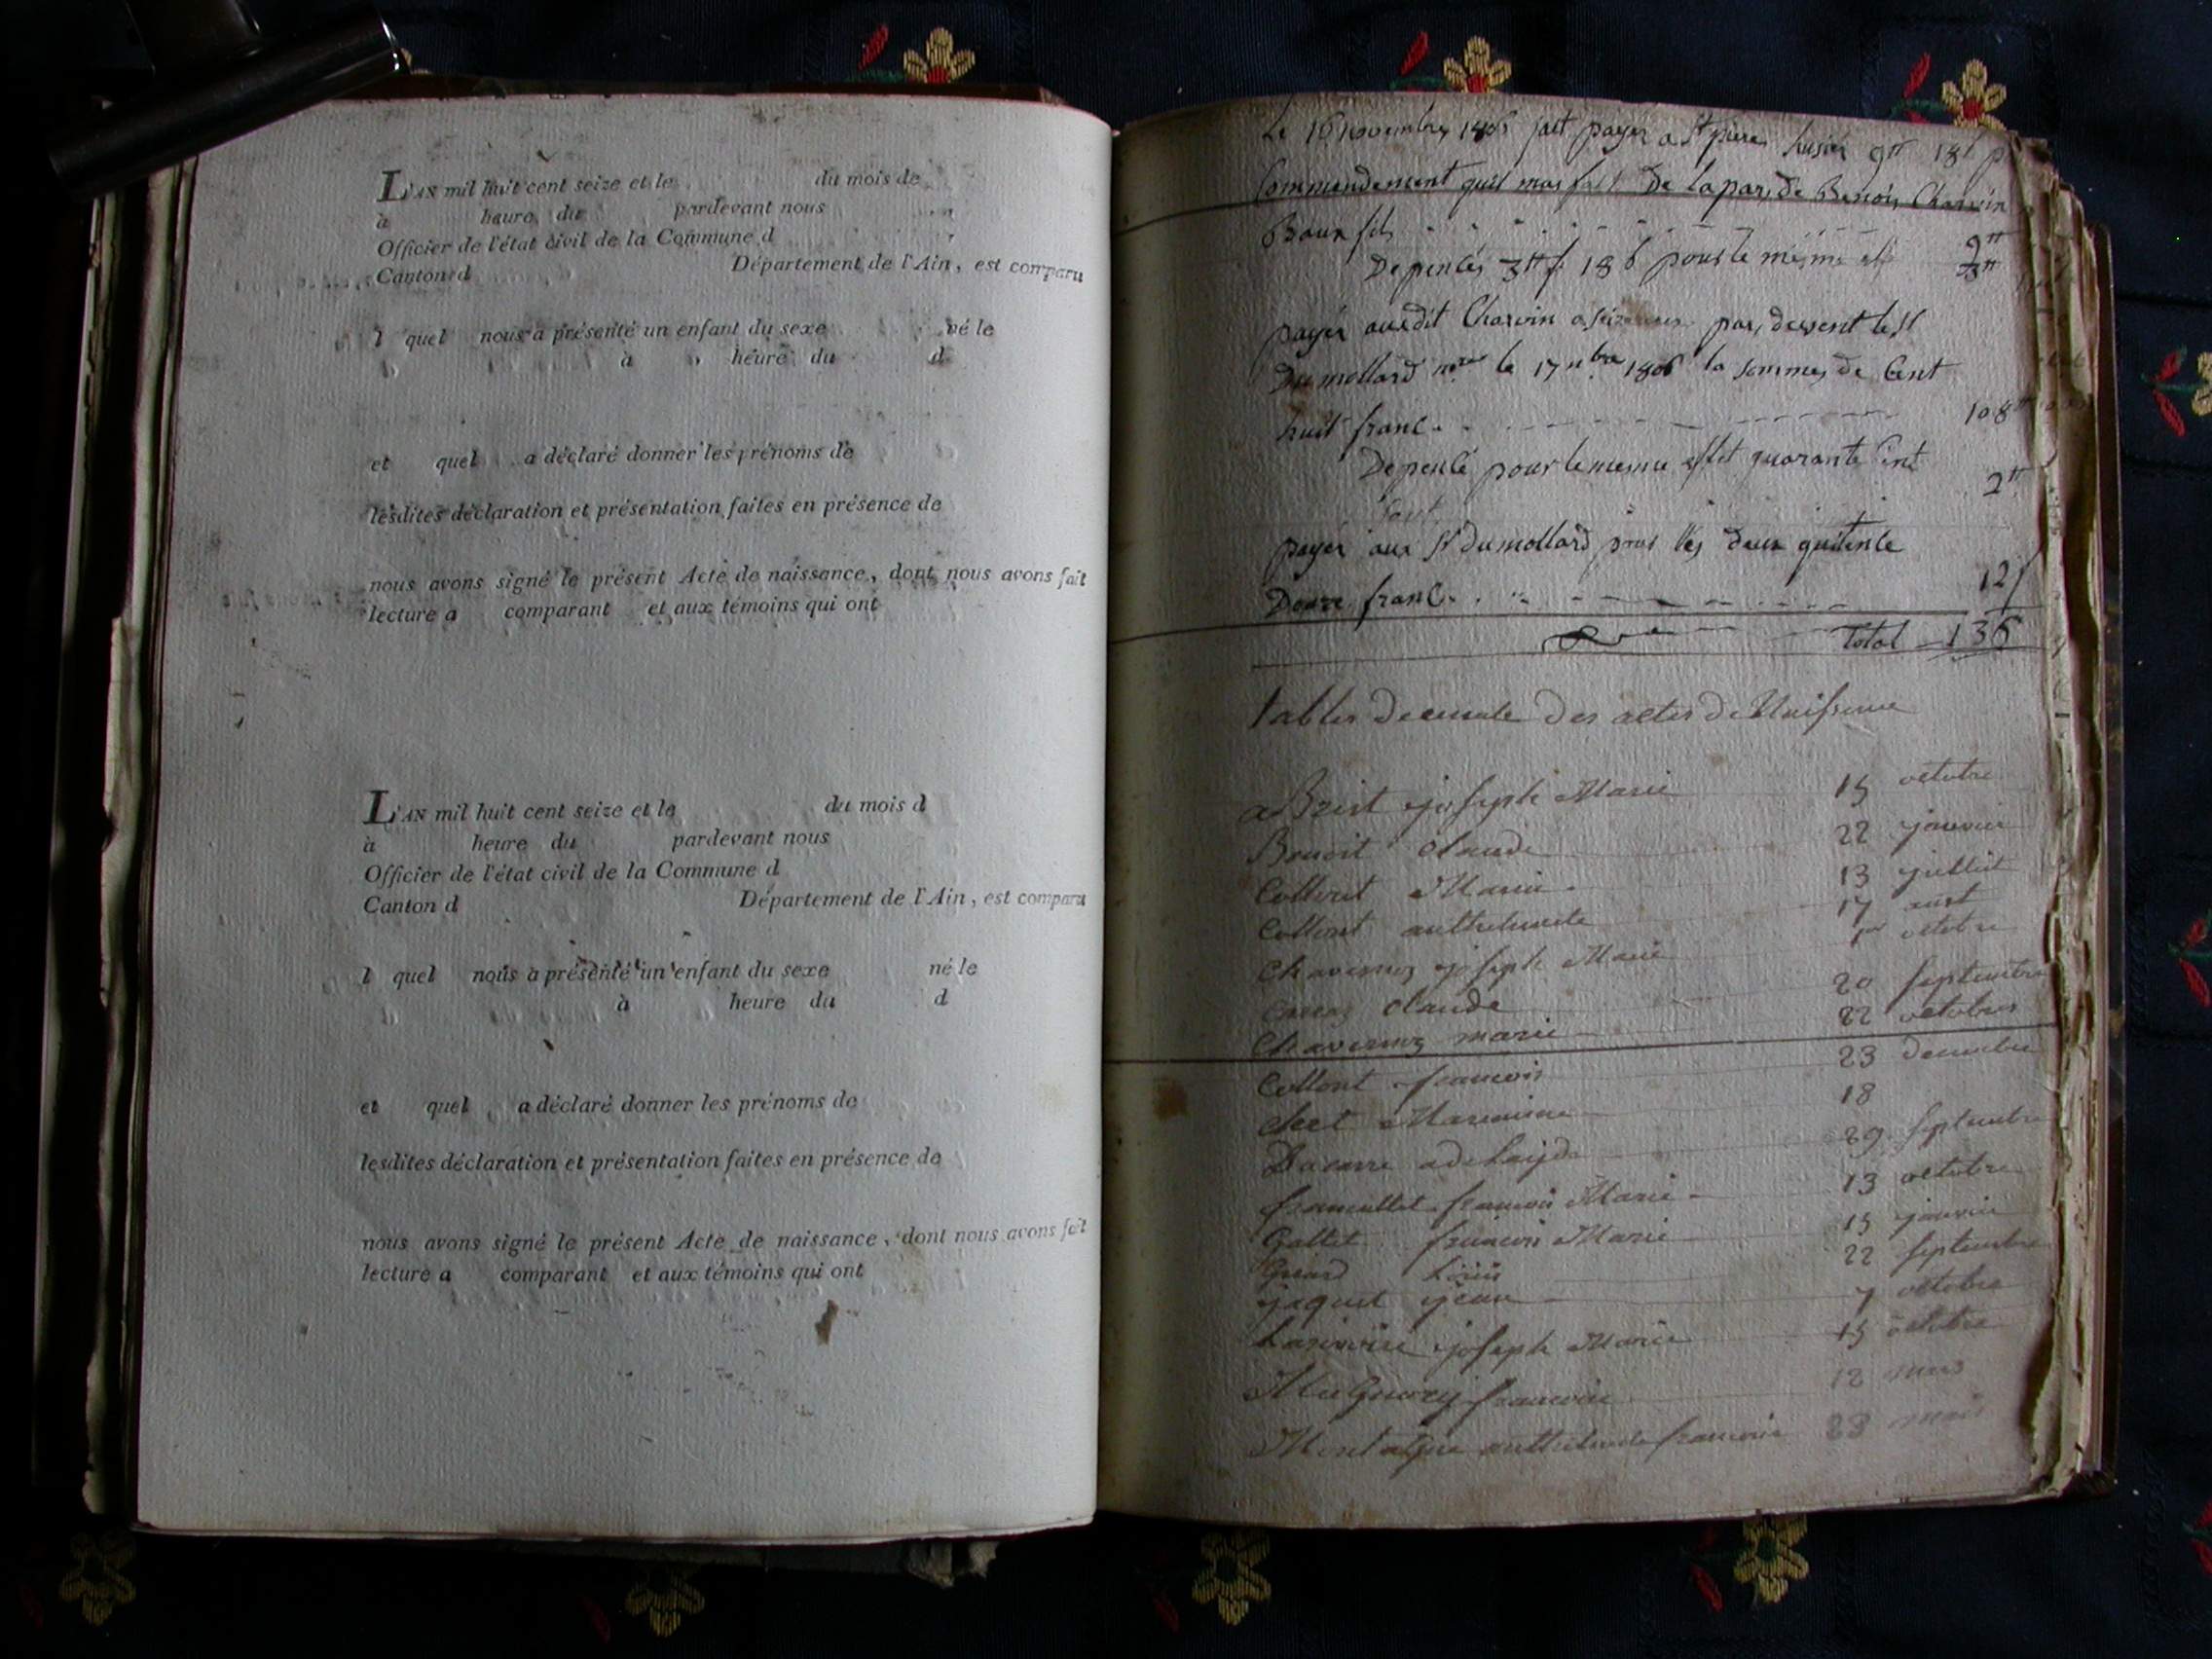 L'AN mil huit cent seize et le du mois de
à heure du pardevant nous
Officier de l'état civil de la Commune d
Canton d Département de l'Ain, est comparu
l quel nous a présenté un enfant du sexe né le
à heure du d
et quel a déclaré donner les prénoms de
lesdites déclaration et présentation faites en présence de
nous avons signé le présent Acte de naissance, dont nous avons fait
lecture a comparant et aux témoins qui ont
L'AN mil huit cent seize et le du mois d
à heure du pardevant nous
Officier de l'état civil de la Commune d
Canton d Département de l'Ain, est comparu
l quel nous a présenté un enfant du sexe né le
à heure du d
et quel a déclaré donner les prénoms de
lesdites déclaration et présentation faites en présence de
nous avons signé le présent Acte de naissance, dont nous avons fait
lecture a comparant et aux témoins qui ont
Le 16 novembre 1806 fait payer a St pierre
Commendement quil mas fait De la par, de Benoit Charvin
Boux fils
Depencés pour le mesme
payér ausdit Charvin par, dessent le St
Dumollard le 17 nbre 1806 la sommes de Cent
huit franc 108
Depencé pour le meme effet quarante
2
payér aux St Dumollard pour les deux quitence
Douze franc 12
Total 136
Tables decennale des actes de Naissance
Joseph Marie 15 octobre
Benoit Claude 22 janvier
Collont Marie 13 juillet
Collont anthelmette 17 aust
Chavernoz joseph Marie 1er octobre
Claude 20 septembre
Chavernoz marie 22 octobres
Collont francois 23 decembre
18
adelaÿde 29 septembre
francois Marie 13 octobre
Gallet francois Marie 15 janvier
Louis 22 septembre
jaquet jean 7 octobre
joseph Marie 15 octobre
12 mars
anthelmette francoise 23 mars